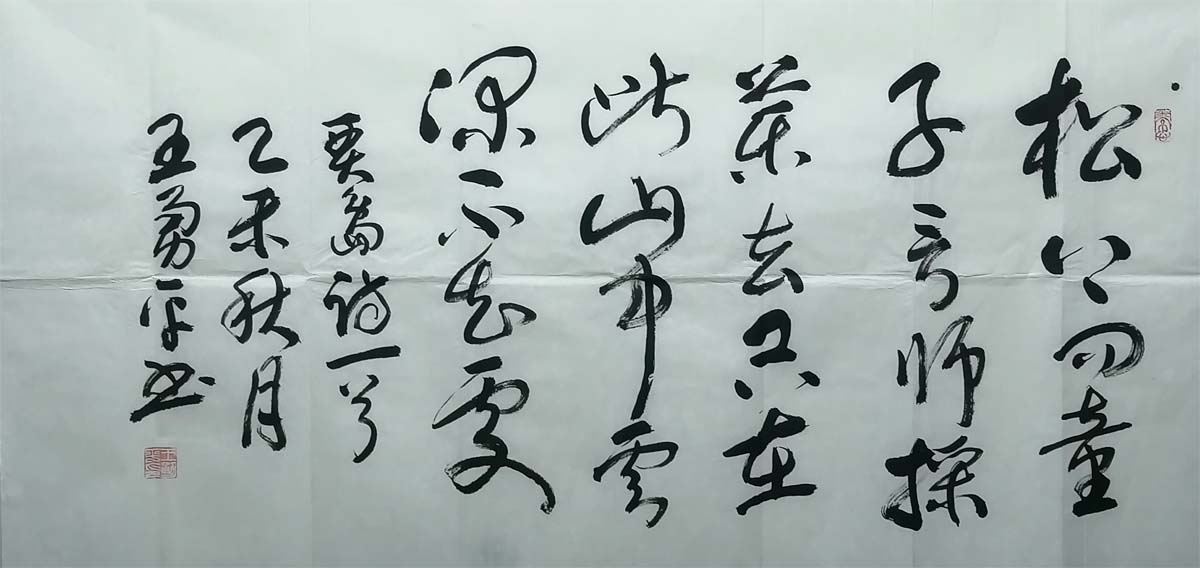 松下问童
子言师採
藥去只在
此山中雲
深不知處
贾岛诗一首
乙未秋月
王勇平书